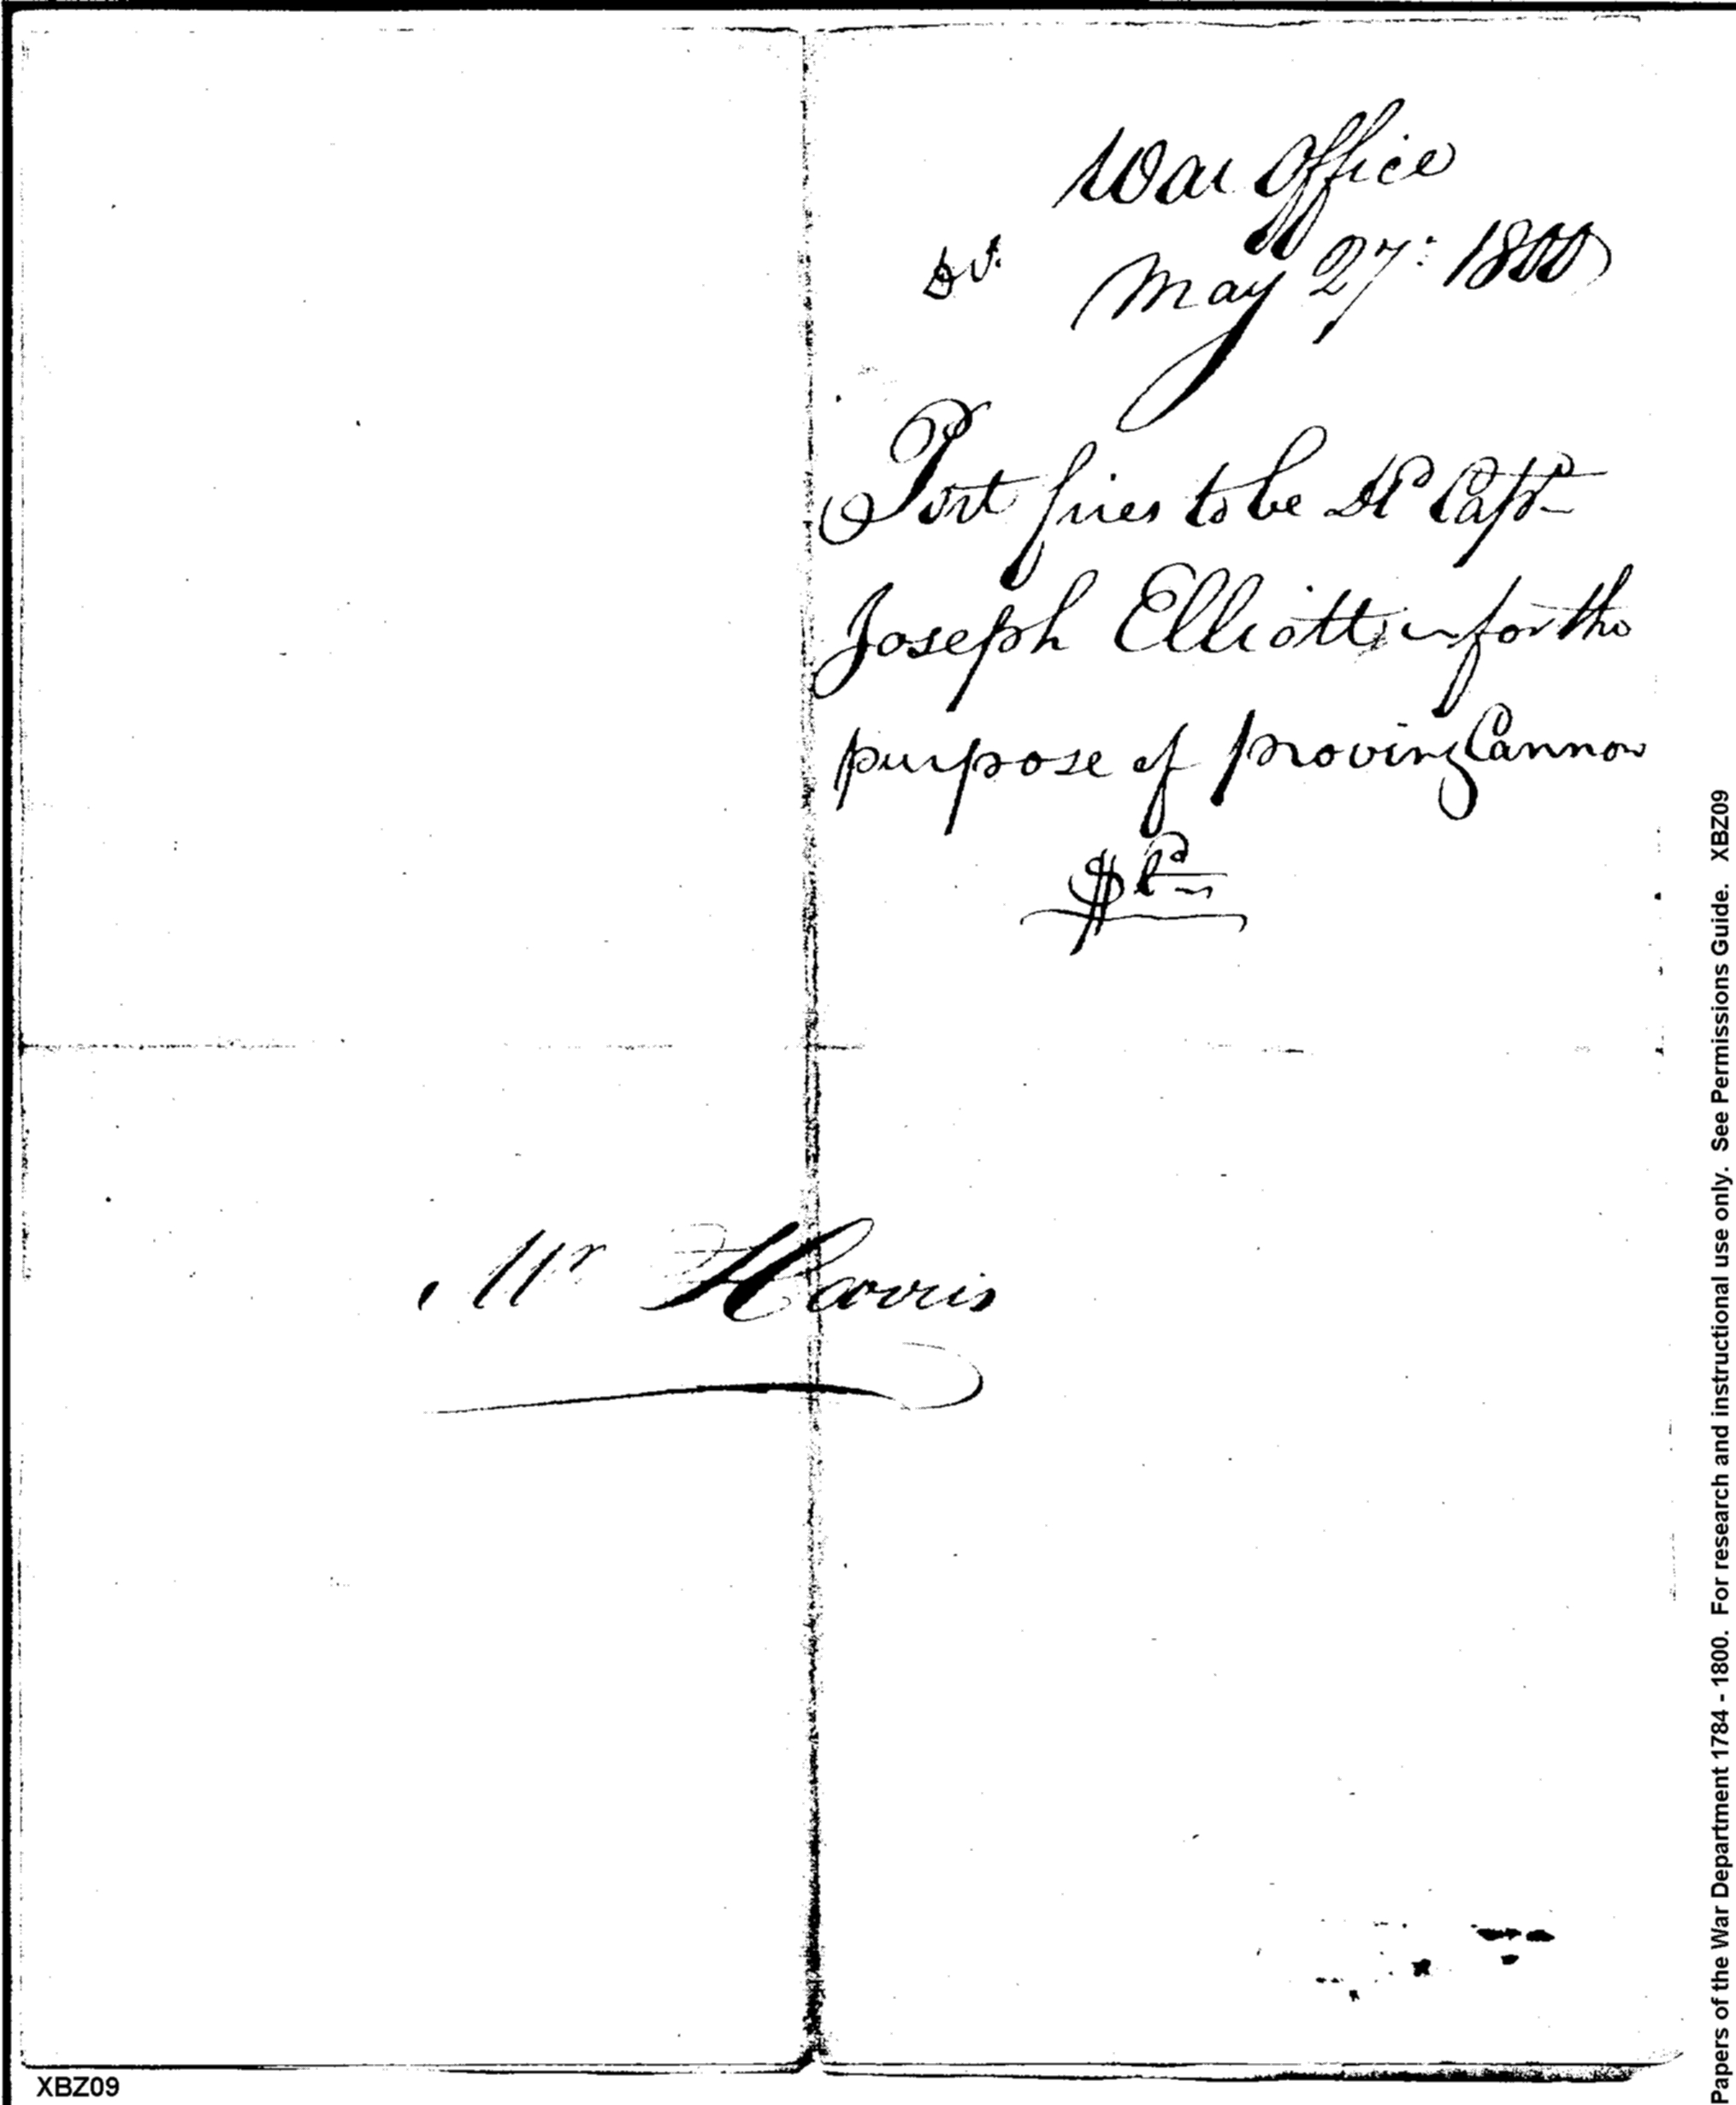 War Office
May 27: 1800
Port fires to be Dd Capt
Joseph Elliott for the
purpose of proving Cannon
Mr Harris
XBZ09
Papers of the War Department 1784 - 1800. For research and instructional use only. See Permissions Guide. XBZ09